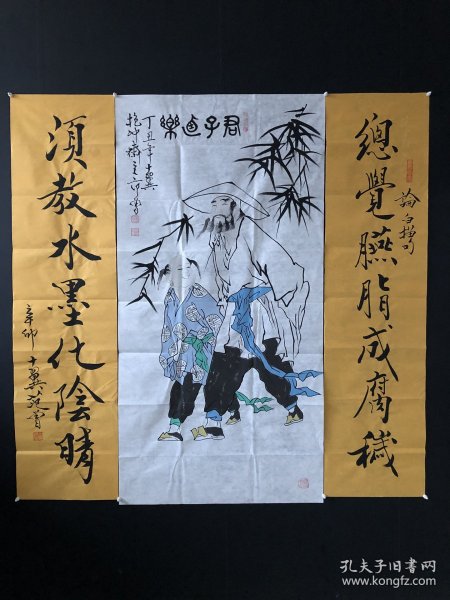 總覺臙脂成腐穢
論白描句
君子直樂
丁丑年十翼
抱冲齋主范曾
須教水墨化陰晴
辛卯
十翼范曾
孔夫子旧书网
www.kongfz.com